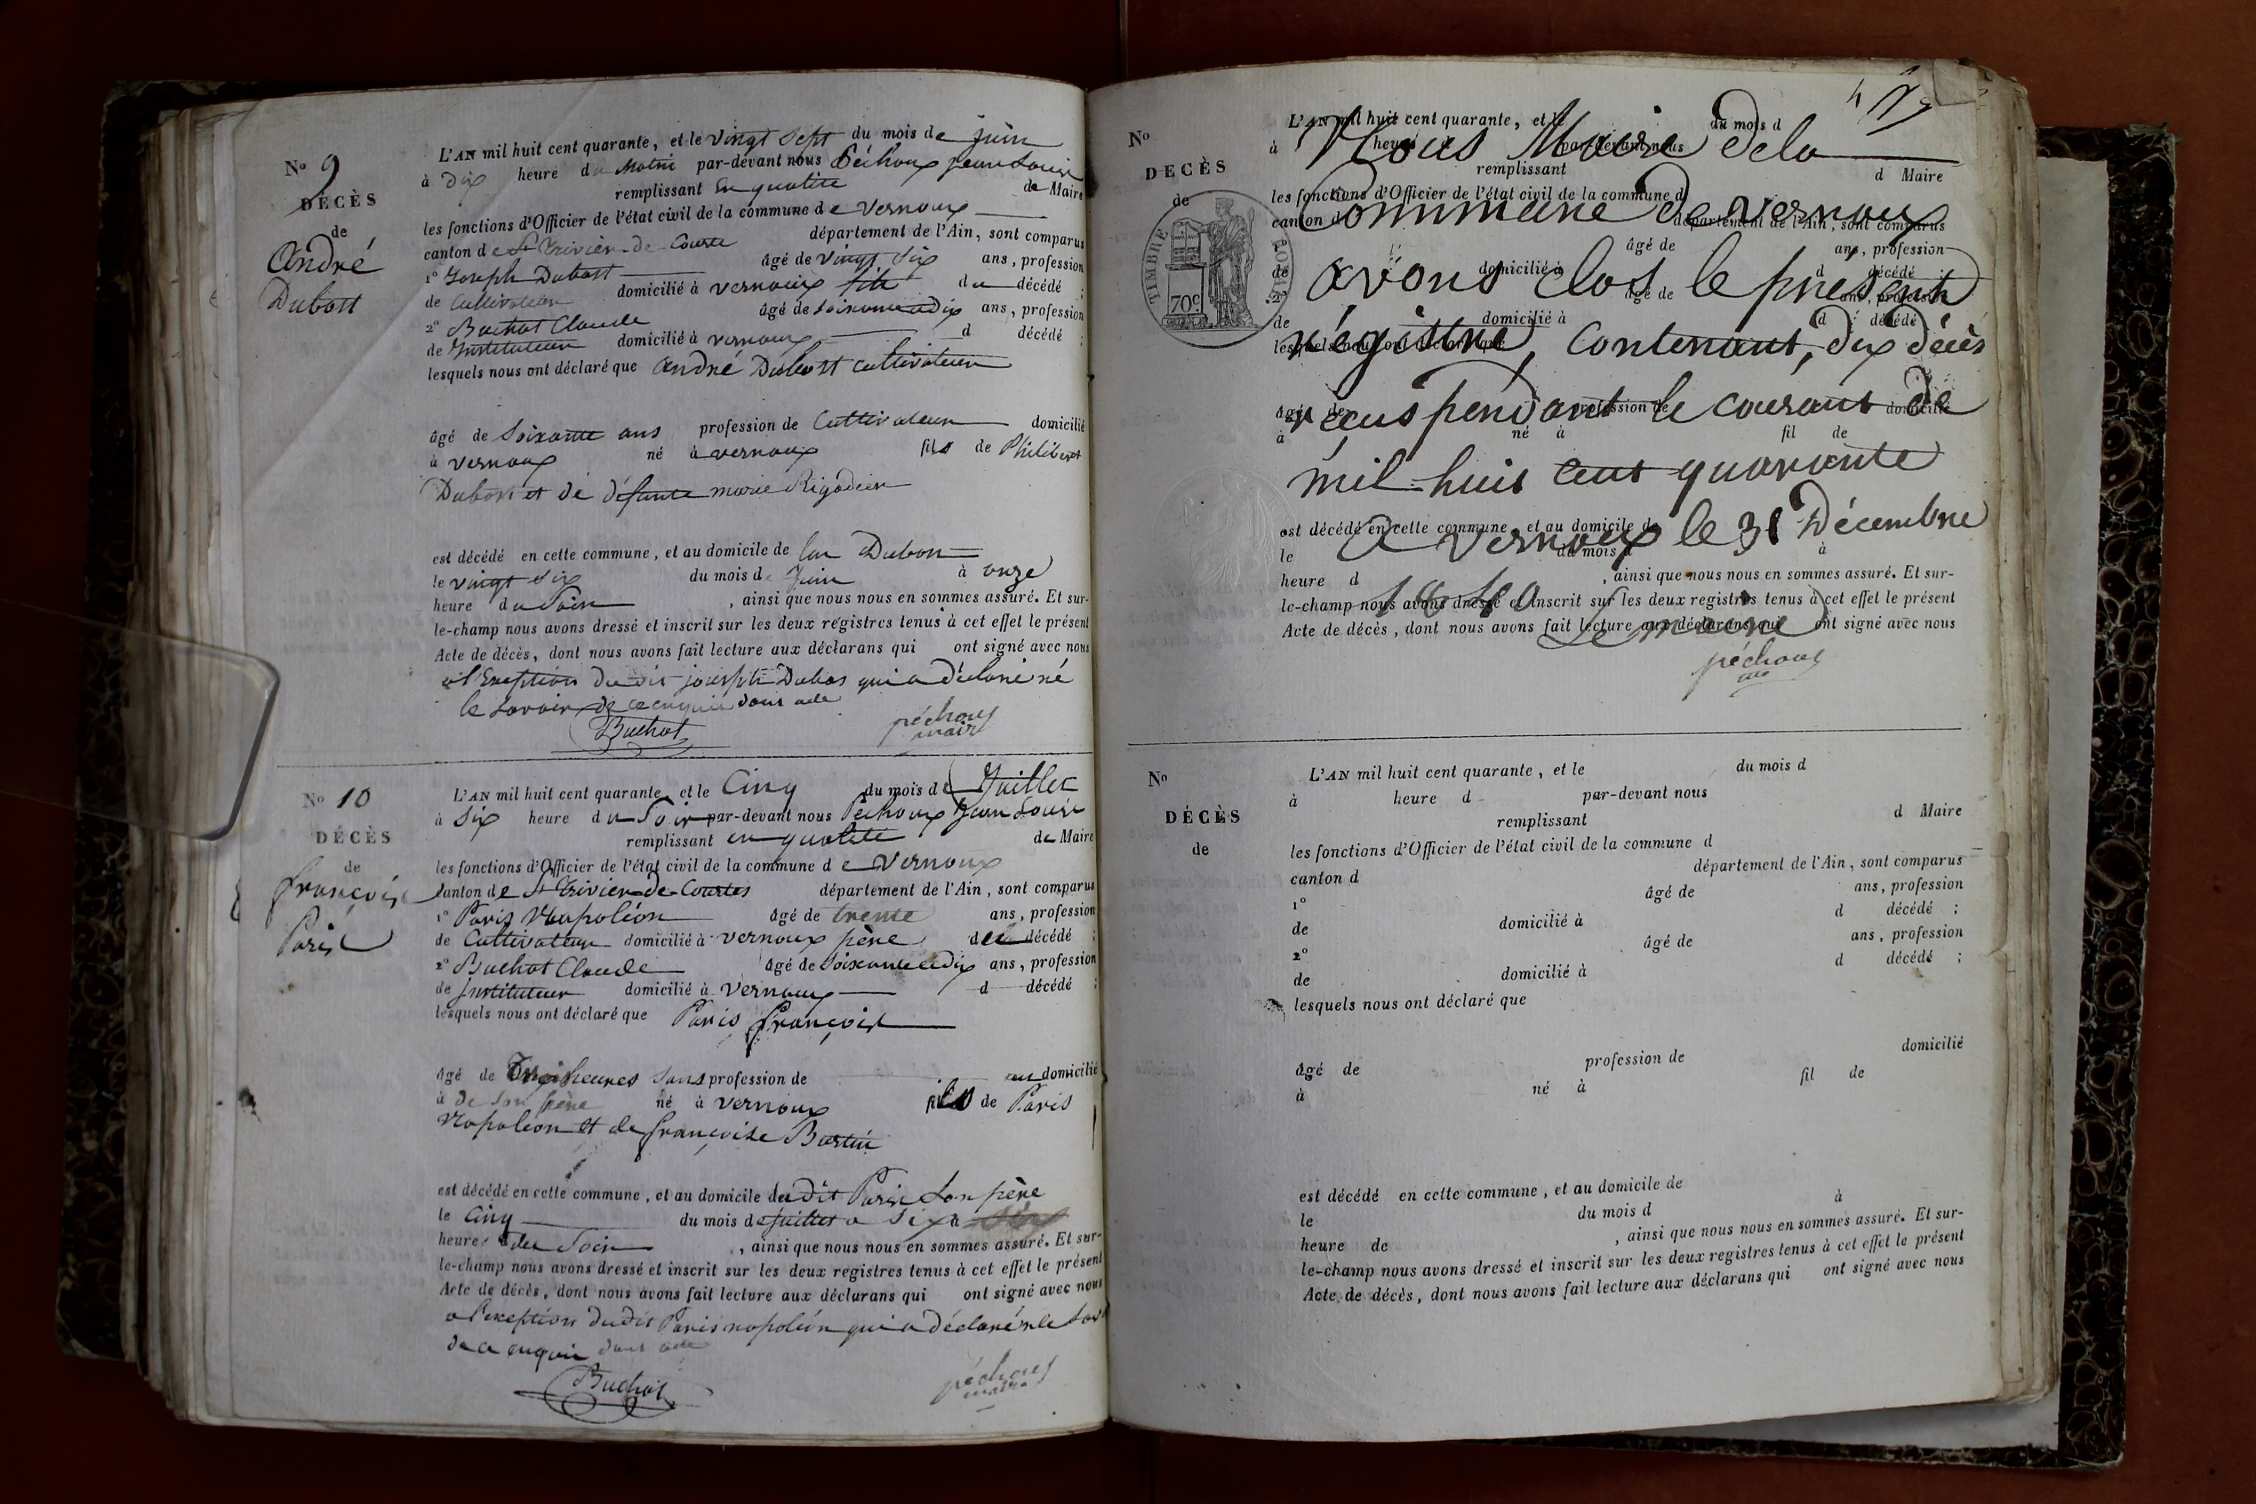 No 9
DÉCÈS
de
André
Dubost
L'AN mil huit cent quarante, et le vingt sept du mois de juin
à dix heure du matin par-devant nous Péchoux jean Louis
remplissant en qualité de Maire
les fonctions d'Officier de l'état civil de la commune de vernoux
canton de St Trivier-de-Courte département de l'Ain, sont comparus
1° Joseph Dubost âgé de vingt six ans, profession
de Cultivateur domicilié à vernoux fils du décédé ;
2° Buchot Claude âgé de soixante et dix ans, profession
de Instituteur domicilié à vernoux d décédé ;
lesquels nous ont déclaré que André Dubost cultivateur
âgé de soixante ans profession de Cultivateur domicilié
à vernoux né à vernoux fils de Philibert
Dubost et de défunte marie Rigodier
est décédé en cette commune, et au domicile de Dubost
le vingt six du mois de Juin à onze
heure du Soir , ainsi que nous nous en sommes assuré. Et sur-
le-champ nous avons dressé et inscrit sur les deux registres tenus à cet effet le présent
Acte de décès, dont nous avons fait lecture aux déclarans qui ont signé avec nous
a l'Exeption du dit joseph Dubos qui a déclaré né
le savoir de ce enquis dont acte
Buchot
péchoux
maire
No 10
DÉCÈS
de
françois
Paris
L'AN mil huit cent quarante et le Cinq du mois de Juillet
à Six heure du Soir par-devant nous Péchoux Jean Louis
remplissant en qualité de Maire
les fonctions d'Officier de l'état civil de la commune de vernoux
canton de St Trivier-de-Courtes département de l'Ain, sont comparus
1° Paris Napoléon âgé de trente ans, profession
de Cultivateur domicilié à vernoux père du décédé ;
2° Buchot Claude âgé de soixante et dix ans, profession
de Instituteur domicilié à vernoux d décédé ;
lesquels nous ont déclaré que Paris françois
âgé de Trois heures sans profession de au domicilié
à de son père né à vernoux fils de Paris
Napoléon et de françoise Bertin
est décédé en cette commune, et au domicile du dit Paris son père
le cinq du mois de juillet a Six à
heure du Soir , ainsi que nous nous en sommes assuré. Et sur-
le-champ nous avons dressé et inscrit sur les deux registres tenus à cet effet le présent
Acte de décès, dont nous avons fait lecture aux déclarans qui ont signé avec nous
a l'exeption du dit Paris napoléon qui a déclaré ne
de ce enquis dont acte
Buchot
péchoux
maire
No
DÉCÈS
de
TIMBRE ROYAL
70c
L'AN mil huit cent quarante, et le du mois d
à heure d par-devant nous
Nous Maire de la
remplissant d Maire
les fonctions d'Officier de l'état civil de la commune d
Commune de vernoux
canton d département de l'Ain, sont comparus
âgé de ans, profession
de domicilié à d décédé
avons clos le présent
2° âgé de ans, profession
de domicilié à d décédé
régistre, contenant, dix décès
lesquels nous ont déclaré que
reçus pendant le courant de
âgé de profession de domicilié
à né à fil de
mil huit cent quarante
est décédé en cette commune, et au domicile de
A vernoux le 31 Décembre
le du mois d à
heure d , ainsi que nous nous en sommes assuré. Et sur-
1840
le-champ nous avons dressé et inscrit sur les deux registres tenus à cet effet le présent
Acte de décès, dont nous avons fait lecture aux déclarans qui ont signé avec nous
Le maire
péchoux
No
DÉCÈS
de
L'AN mil huit cent quarante, et le du mois d
à heure d par-devant nous
remplissant d Maire
les fonctions d'Officier de l'état civil de la commune d
canton d département de l'Ain, sont comparus
1° âgé de ans, profession
de domicilié à d décédé ;
2° âgé de ans, profession
de domicilié à d décédé ;
lesquels nous ont déclaré que
âgé de profession de domicilié
à né à fil de
est décédé en cette commune, et au domicile de
le du mois d à
heure de , ainsi que nous nous en sommes assuré. Et sur-
le-champ nous avons dressé et inscrit sur les deux registres tenus à cet effet le présent
Acte de décès, dont nous avons fait lecture aux déclarans qui ont signé avec nous